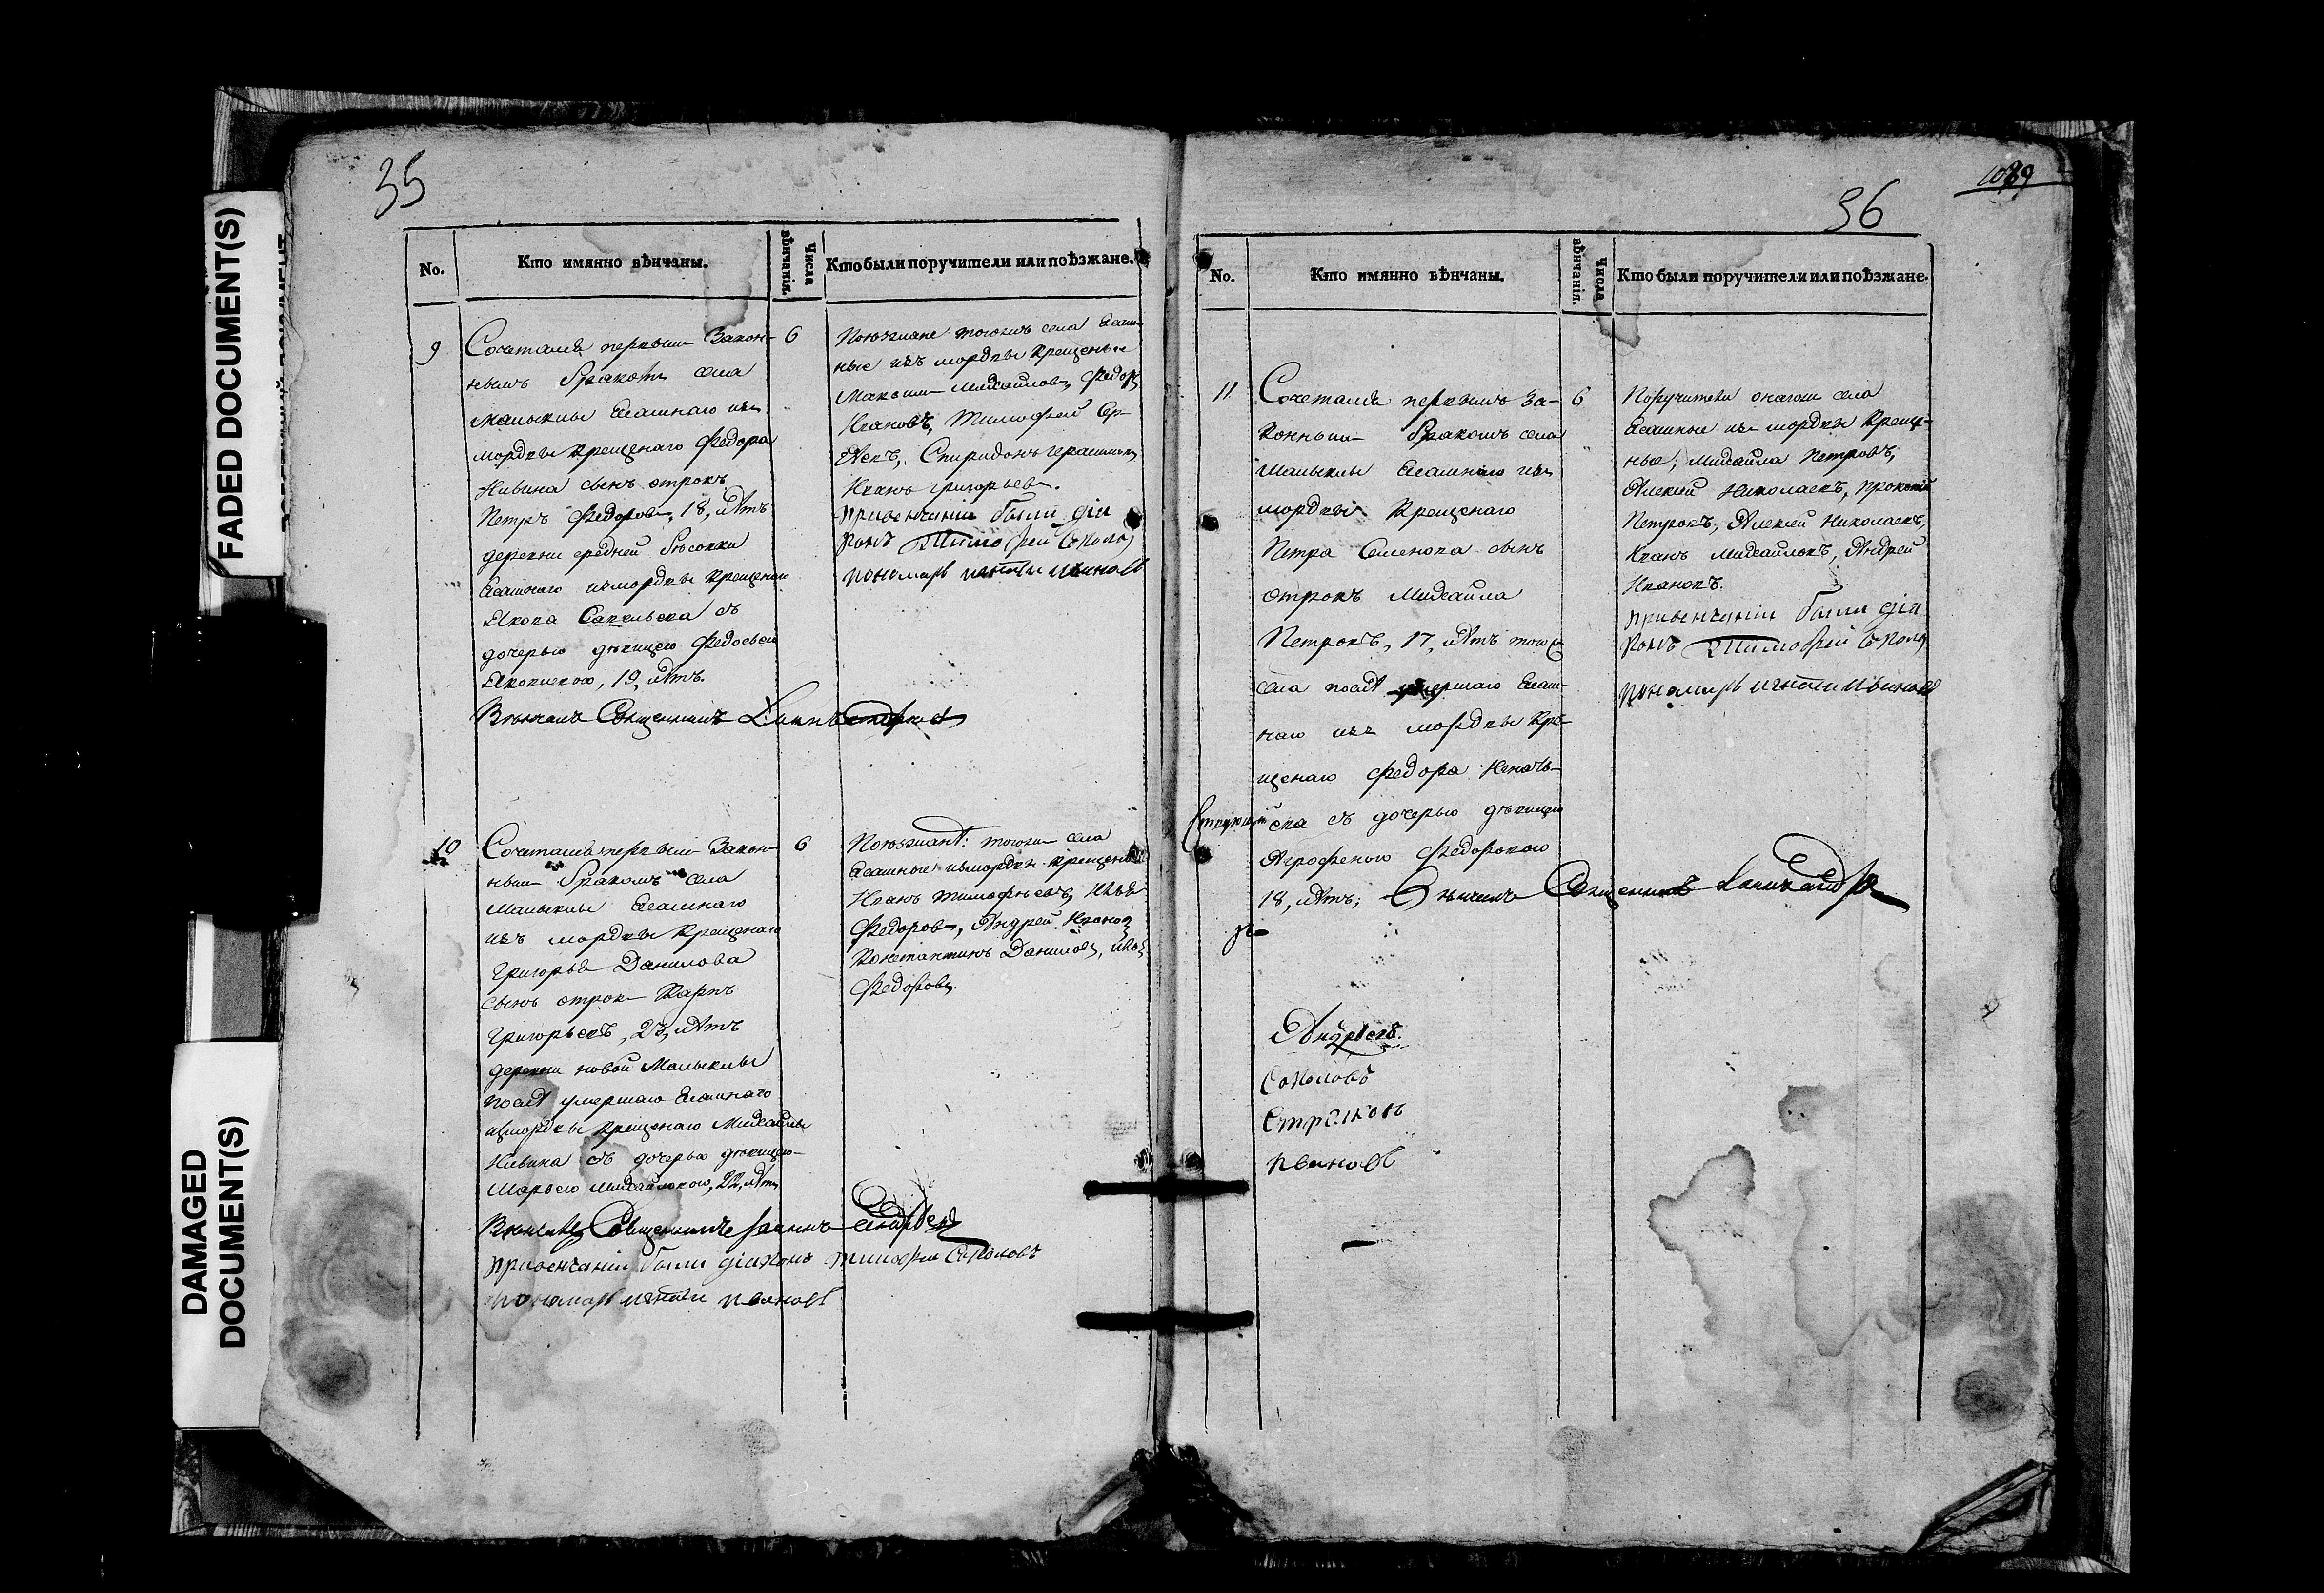 FADED DOCUMENT(S)
DAMAGED
DOCUMENT(S)
35
No.
Кто имянно вѣнчаны.
Числа
вѣнчанія.
Кто были поручители или поѣзжане.
9
Сочетался первымъ Закон-
нымъ бракомъ села
Малыклы Ясашнаго изъ
мордвы крещенаго Федора
сынъ отрокъ
Петръ Федоровъ, 18, лѣтъ
деревни средней
Ясашнаго изъ мордвы крещенаго
Якова Савельева съ
дочерью дѣвицею Федосьею
Яковлевою, 19, лѣтъ.
Вѣнчалъ Священникъ
6
Поезжане тогожъ села Ясаш-
ные изъ мордвы крещеные
Максимъ Михайловъ, Федоръ
Ивановъ, Тимофей Сер-
Спиридонъ Герасимовъ
Иванъ Григорьевъ.
привенчаніи были діа
конъ Тимофей Соколовъ
пономарь Ивановъ
10
Сочетался первымъ Закон-
нымъ бракомъ села
Малыклы Ясашнаго
изъ мордвы крещенаго
Григорья Данилова
сынъ отрокъ Карпъ
Григорьевъ, 23, лѣтъ
деревни новой Малыклы
послѣ умершаго Ясашнаго
изъ мордвы крещенаго Михайлы
съ дочерью дѣвицею
Марьею Михайловою, 22, лѣтъ
Вѣнчалъ Священникъ Іоаннъ Андреевъ
привенчаніи были діаконъ Тимофей Соколовъ
пономарь Ивановъ
6
Поезжанѣ: тогожъ села
Ясашные изъ мордвы крещеные
Иванъ Тимофѣевъ, Илья
Федоровъ, Андрей Ивановъ
Константинъ Даниловъ,
Федоровъ.
1089
36
No.
Кто имянно вѣнчаны.
Числа
вѣнчанія.
Кто были поручители или поѣзжане.
11
Сочетался первымъ За-
коннымъ бракомъ села
Малыклы Ясашнаго изъ
мордвы крещенаго
Петра Семенова сынъ
отрокъ Михайла
Петровъ, 17, лѣтъ тогожъ
села послѣ умершаго Ясаш-
наго изъ мордвы кре-
щенаго Федора Игнать-
ева съ дочерью дѣвицею
Агрофеною Федоровою
18, лѣтъ; Вѣнчалъ Священникъ
6
Поручители онагожъ села
Ясашные изъ мордвы креще-
ные; Михайла Петровъ,
Алексей Николаевъ, Прокопій
Петровъ, Алексей Николаевъ,
Иванъ Михайловъ, Андрей
Ивановъ.
привенчаніи были діа
конъ Тимофей Соколовъ
пономарь Ивановъ
Андреевъ.
Соколовъ
Стрелковъ
Ивановъ